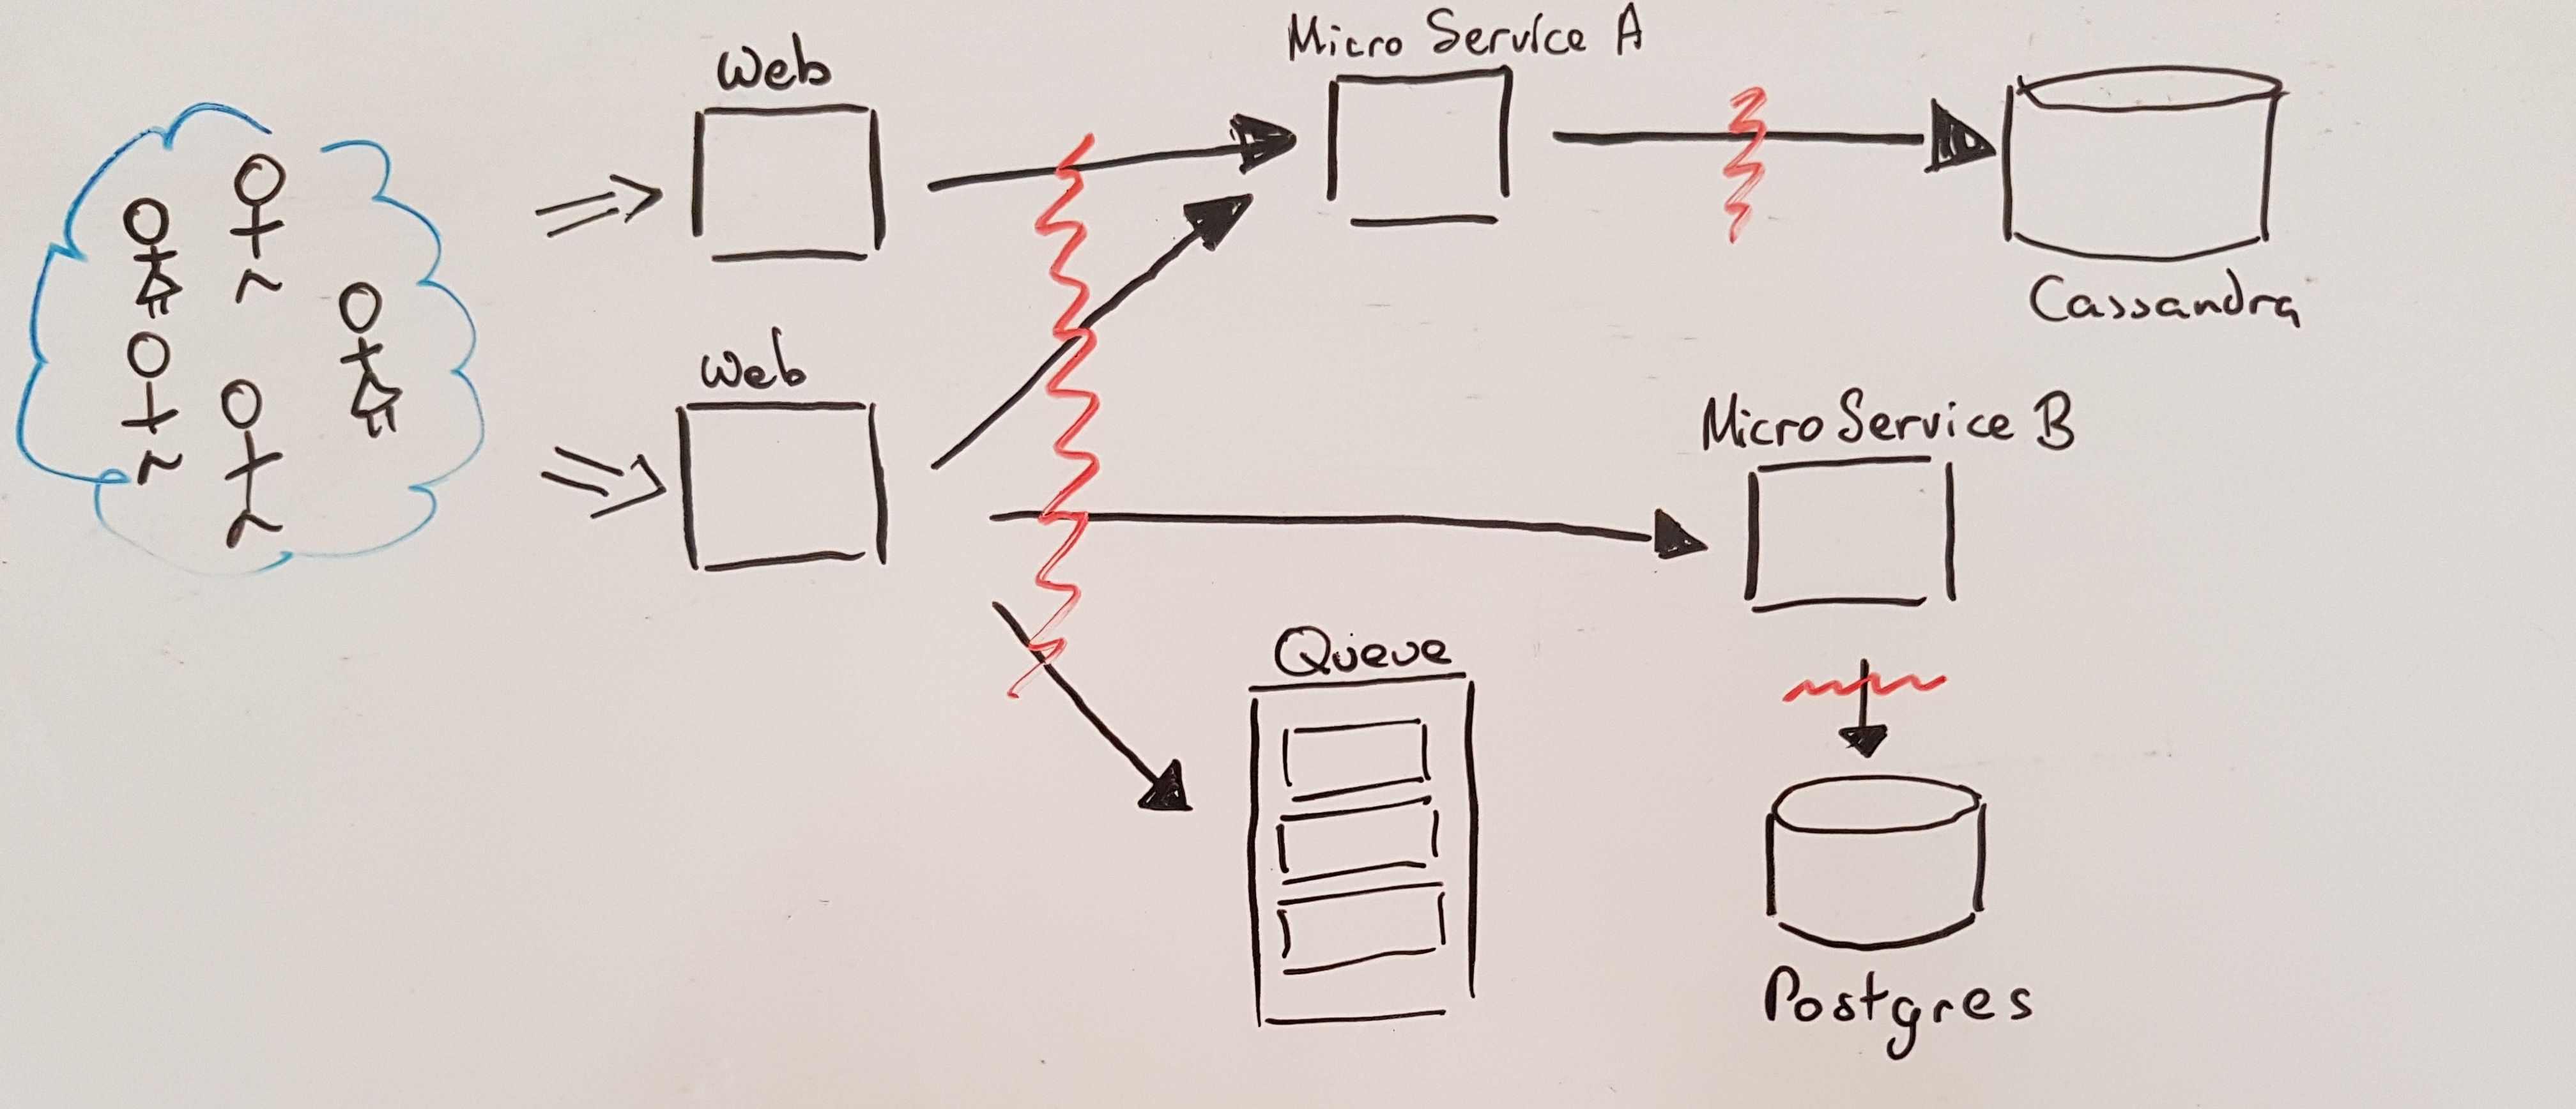 Web
Micro Service A
Cassandra
Web
Micro Service B
Queue
Postgres